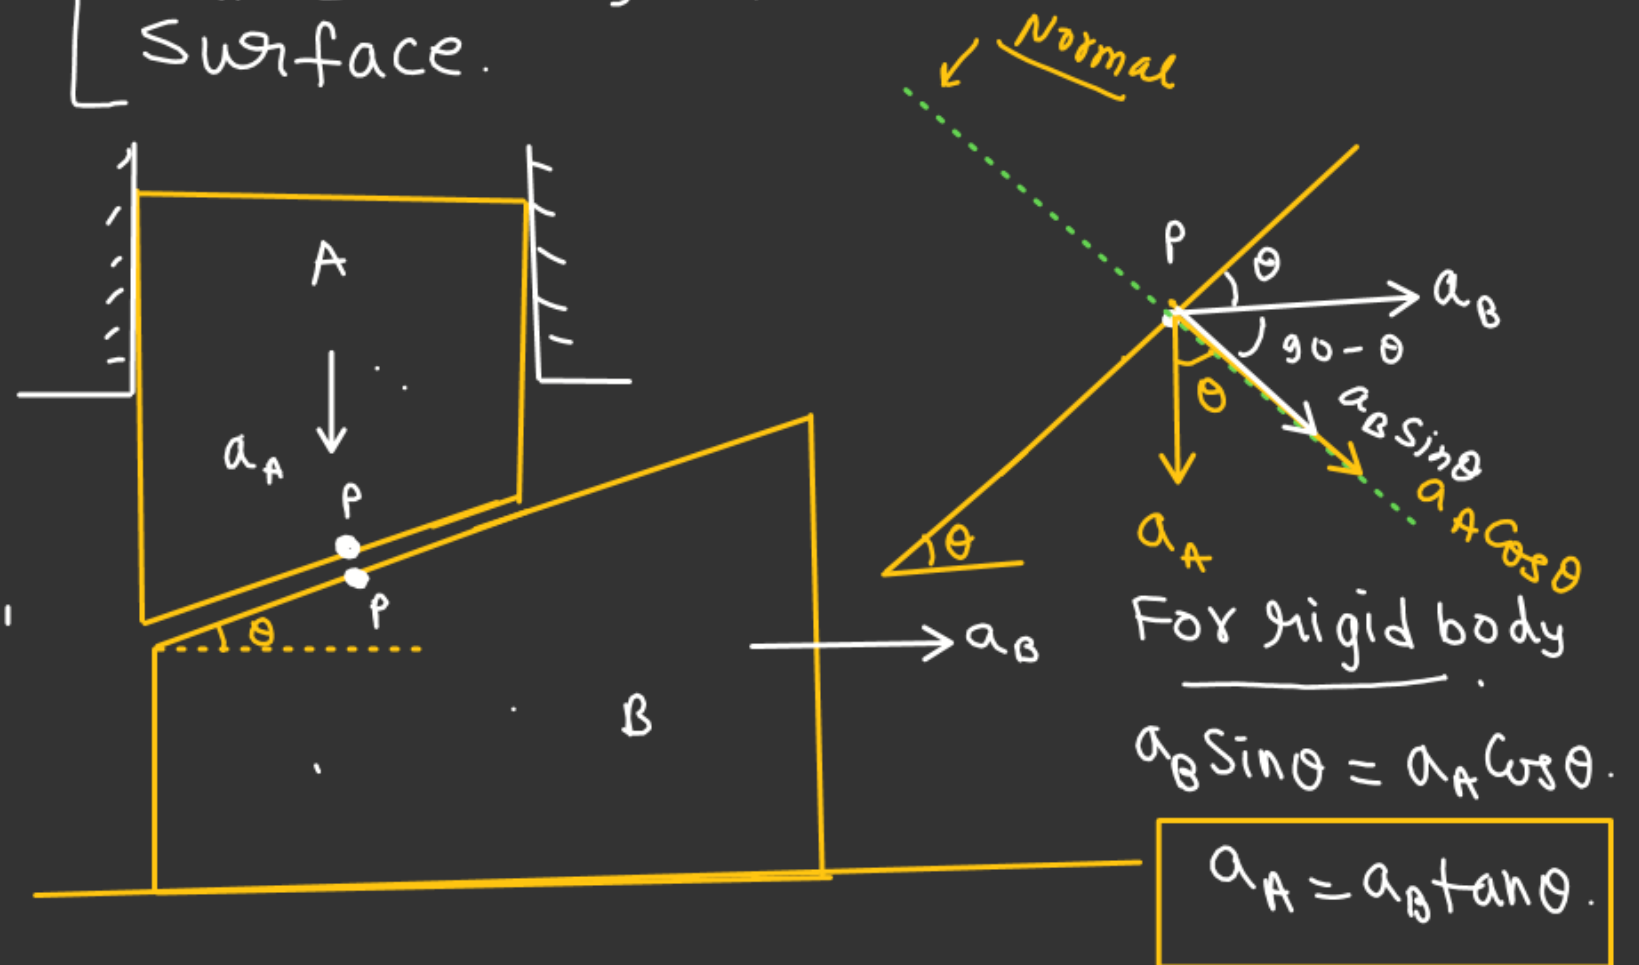 Surface.
Normal
A
a_A
P
P
θ
B
a_B
P
θ
a_B
90-θ
θ
a_B Sinθ
a_A Cosθ
a_A
θ
For rigid body
a_B Sinθ = a_A Cosθ.
a_A = a_B tanθ.